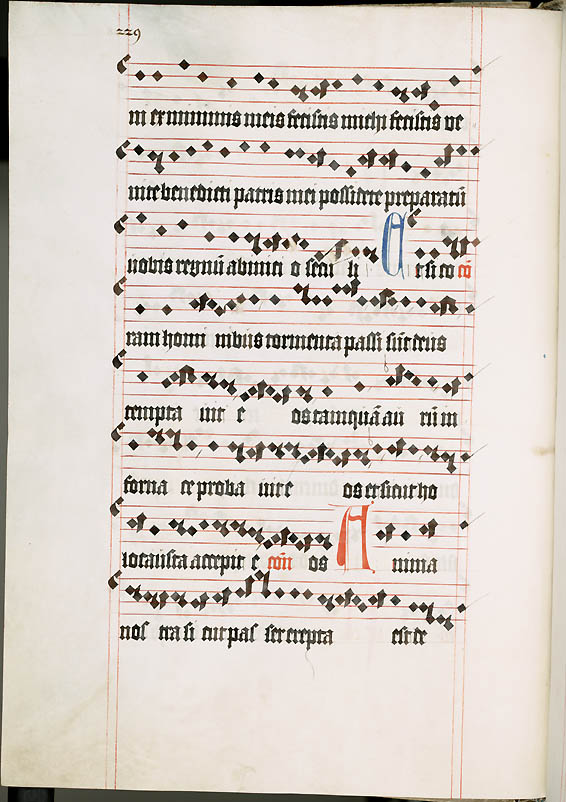 229
ni ex minimis meis fecistis michi fecistis ve
nite benedicti patris mei possidete preparatū
vobis regnū ab inici o seculi Et si co cō
ram homi nibus tormenta passi sūt deus
tempta uit e os tamquā au rū in
forna ce proba uit e os et sicut ho
locausta accepit e cōn os Anima
nos tra si cut pas ser erepta est de